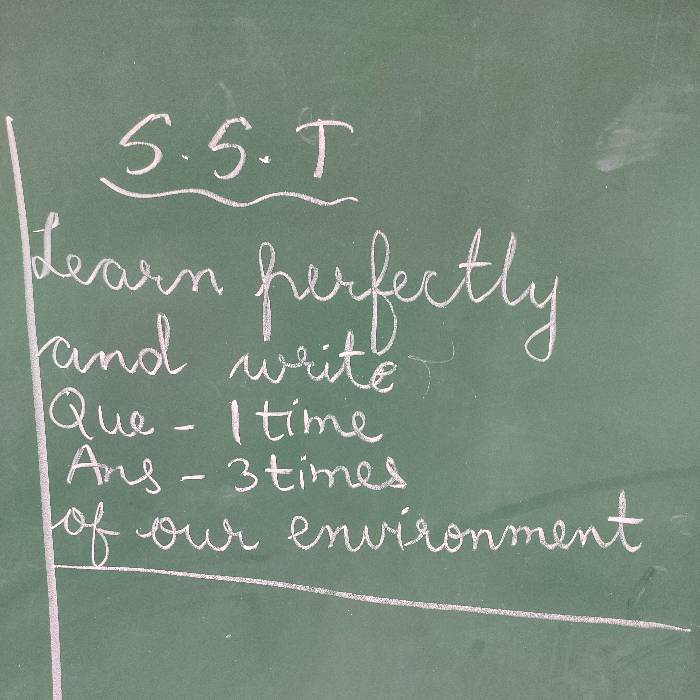 S.S.T
Learn perfectly
and write
Que - 1 time
Ans - 3 times
of our environment